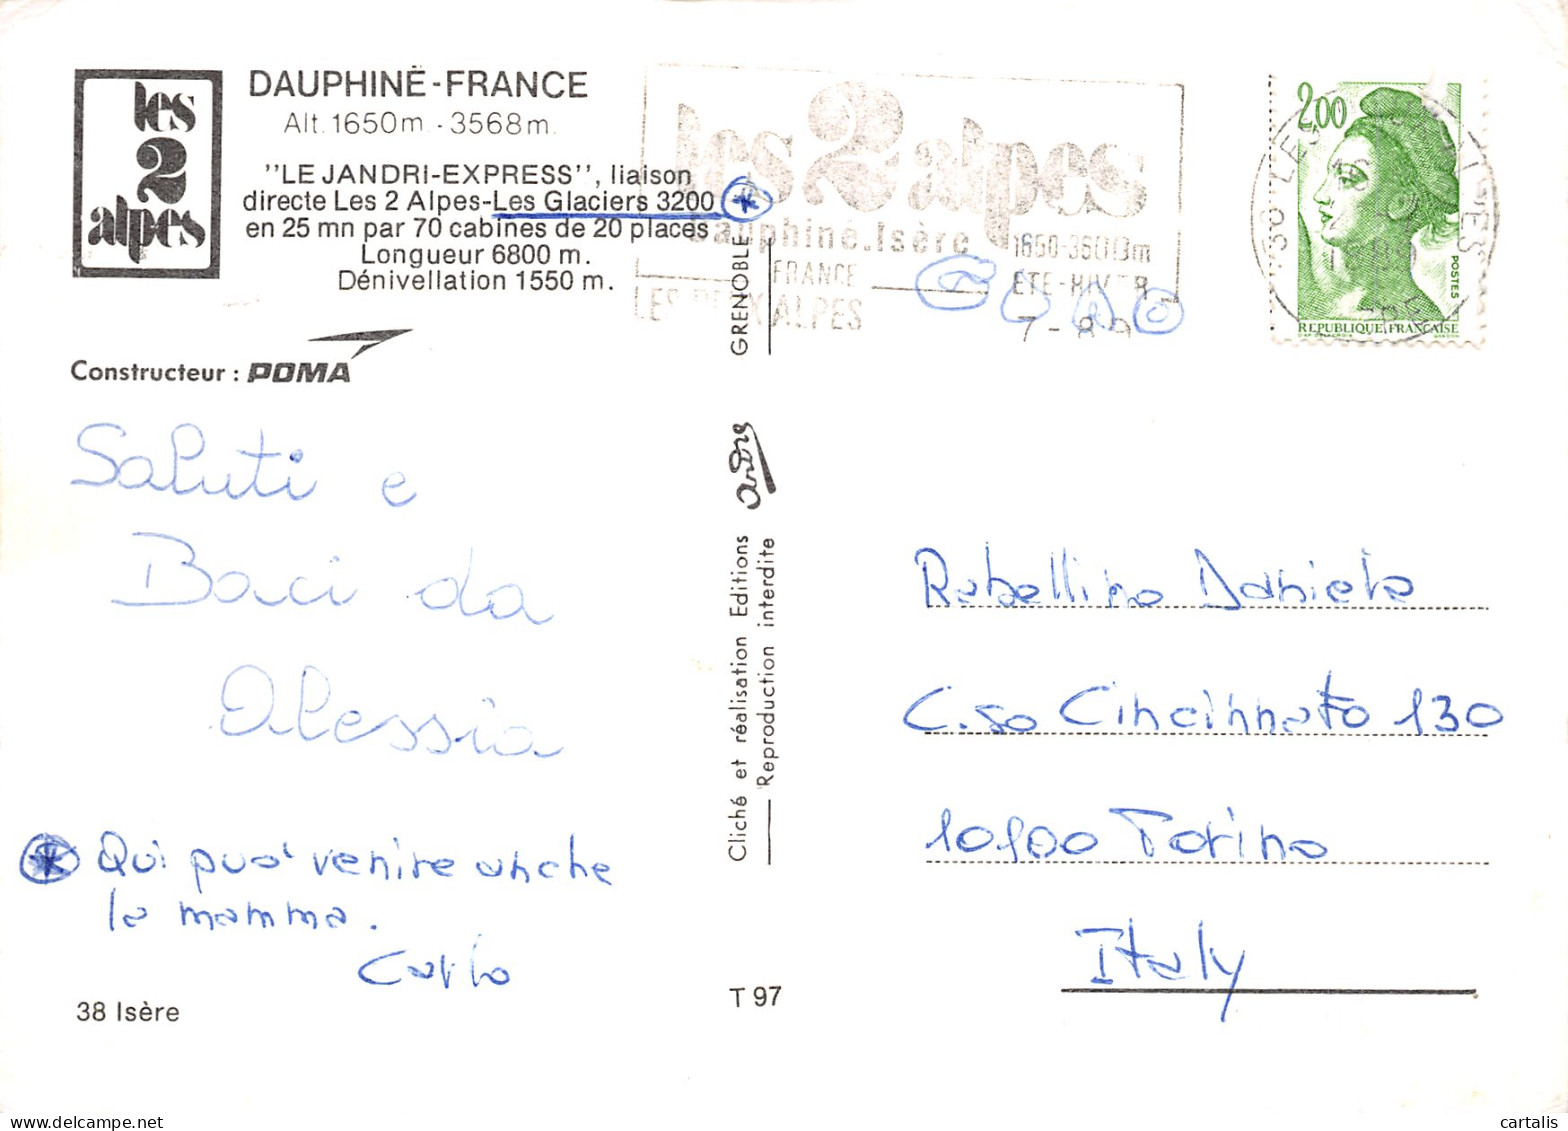 les
2
alpes
DAUPHINÉ-FRANCE
Alt. 1650m. - 3568m.
"LE JANDRI-EXPRESS", liaison
directe Les 2 Alpes-Les Glaciers 3200 *
en 25 mn par 70 cabines de 20 places
Longueur 6800 m.
Dénivellation 1550 m.
Constructeur : POMA
les 2 alpes
Dauphiné.Isère
FRANCE
ETE-HIVER
LES DEUX ALPES
CIAO
2,00
POSTES
REPUBLIQUE FRANÇAISE
Saluti e
Baci da
Alessia
* Qui può venire anche
la mamma.
Carlo
38 Isère
GRENOBLE
Cliché et réalisation Editions andré
Reproduction interdite
T 97
Rabellino Daniele
C.so Cincinnato 130
10100 Torino
Italy
cartalis